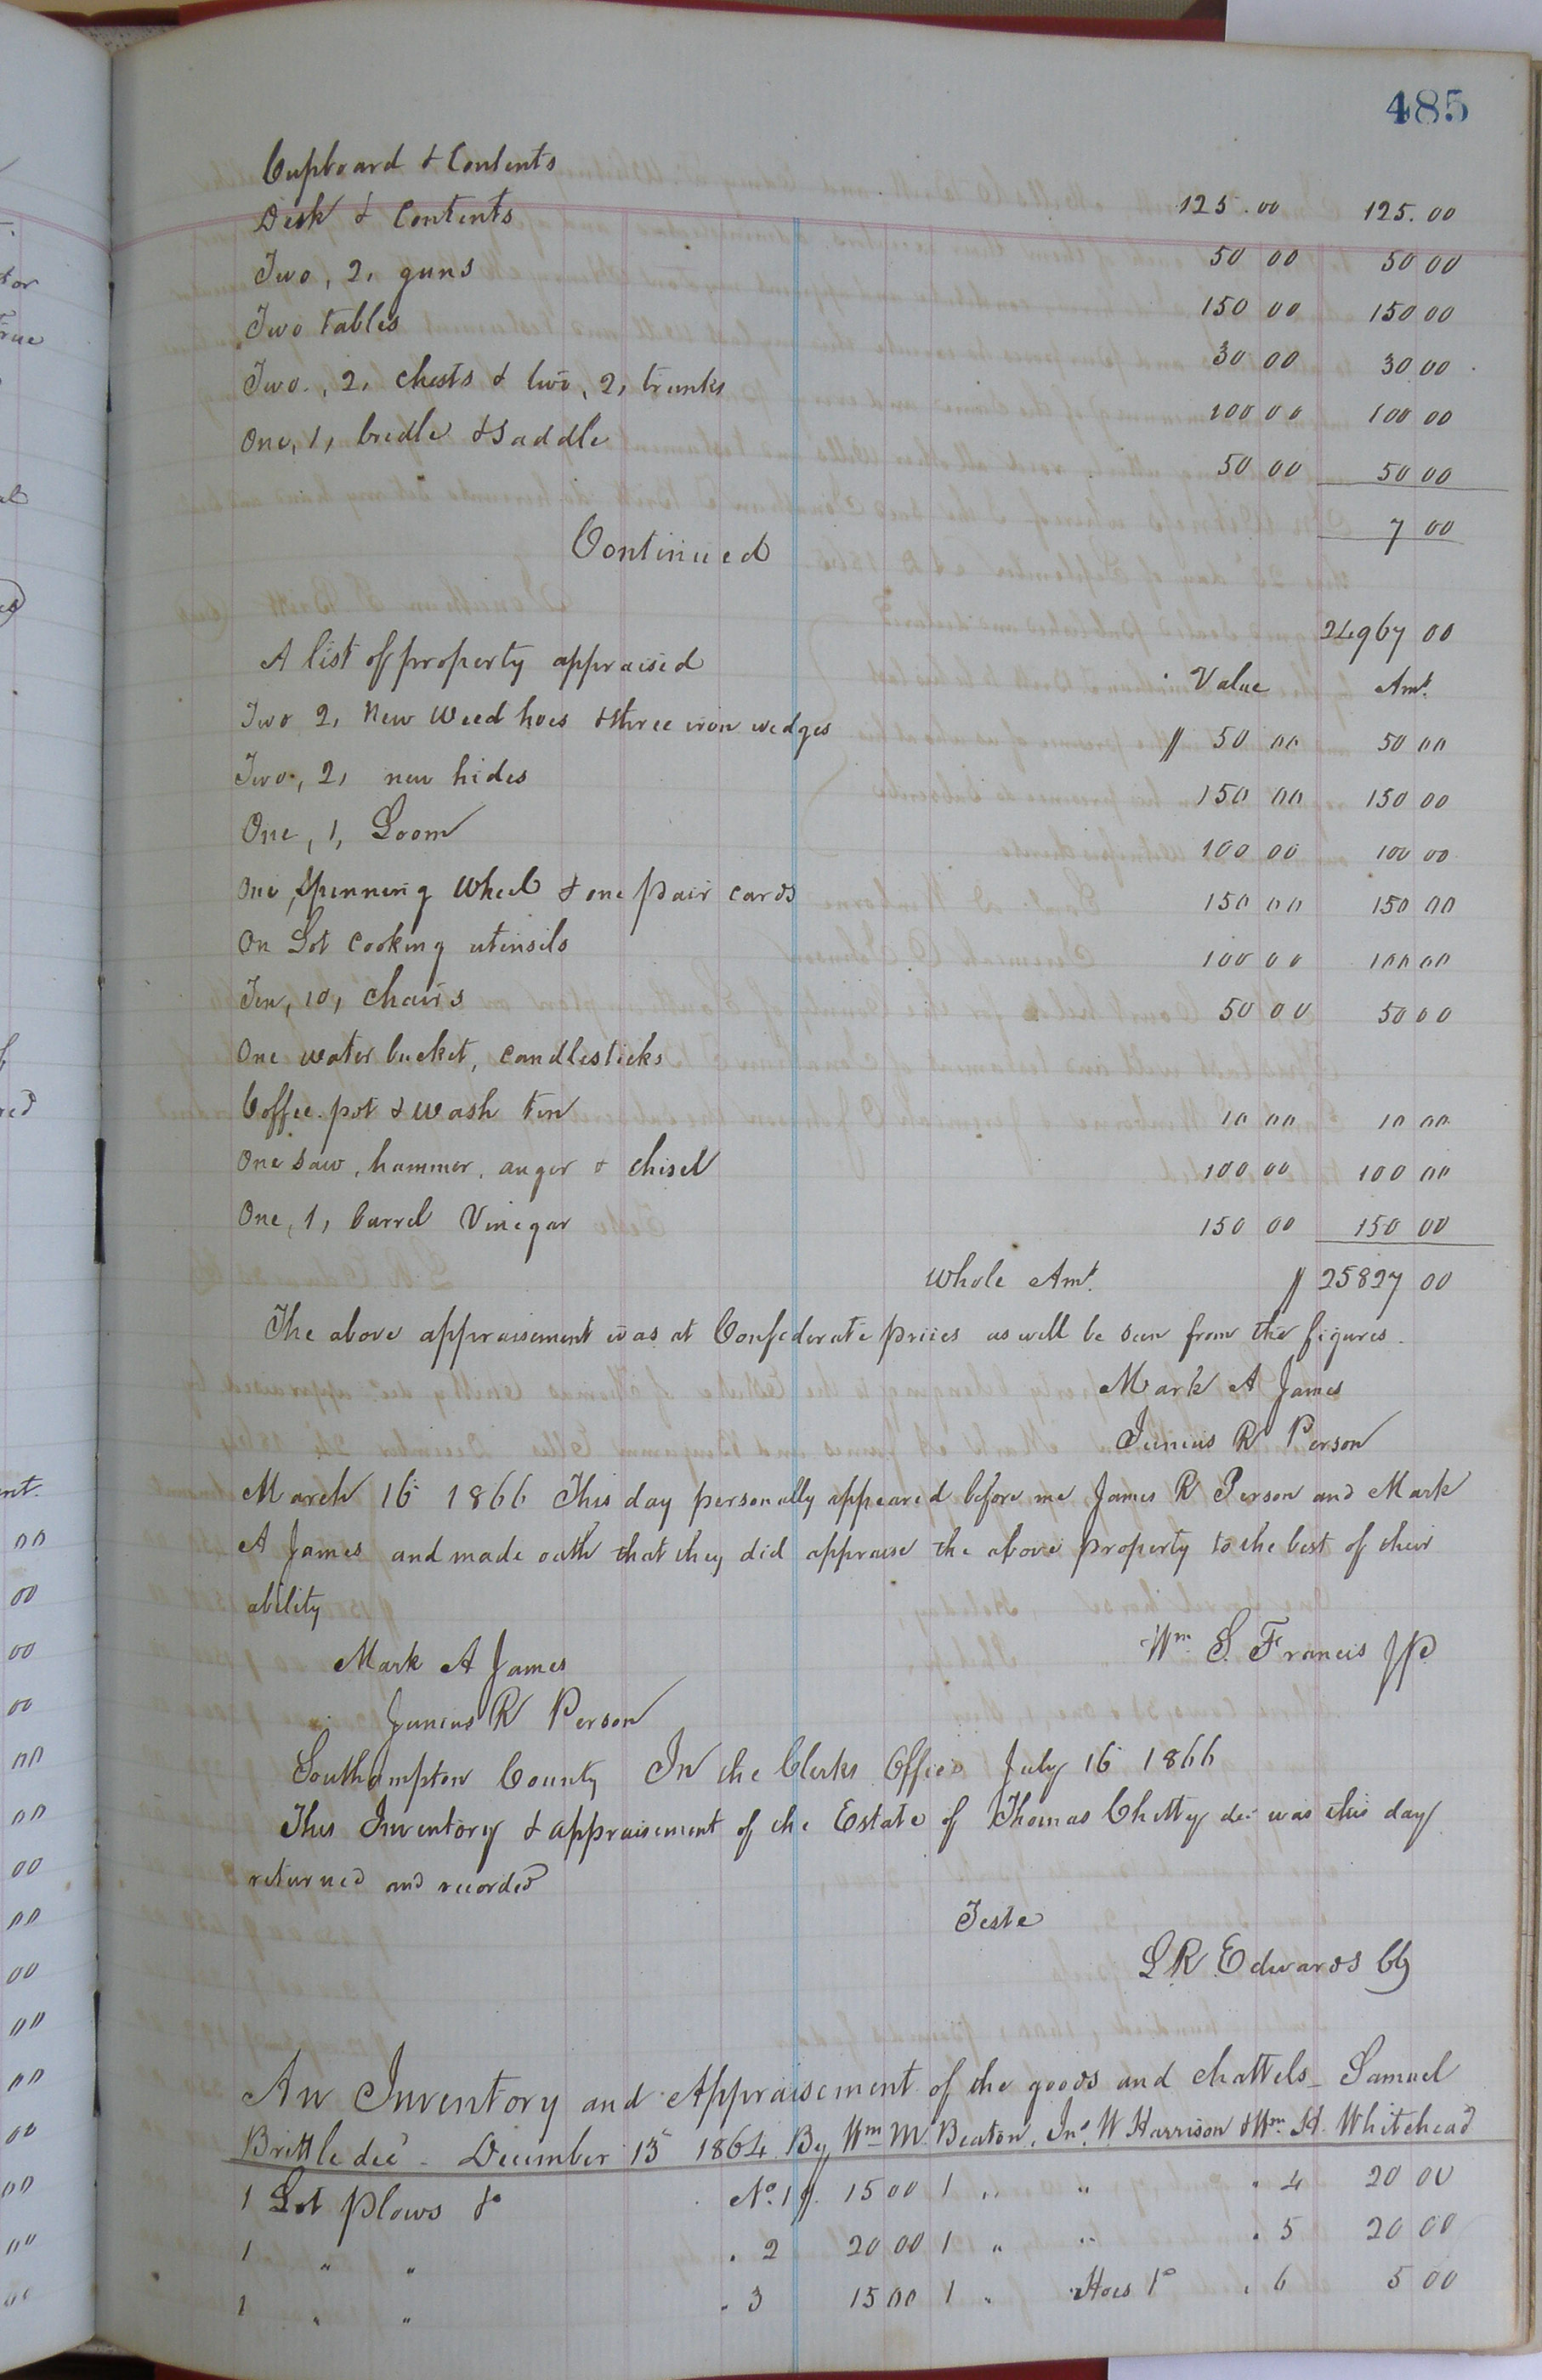 485
Cupboard & Contents 125.00 125.00
Desk & Contents 50 00 50 00
Two, 2, guns 150 00 150 00
Two tables 30 00 30 00
Two, 2, chests & two, 2, trunks 100 00 100 00
One, 1, bridle & Saddle 50 00 50 00
7 00
Continued
24967 00
A list of property appraised Value Amt.
Two 2, New Weed hoes & three iron wedges $ 50 00 50 00
Two, 2, new hides 150 00 150 00
One, 1, Loom 100 00 100 00
One, Spinning Wheel & one pair cards 150 00 150 00
On Lot Cooking utensils 100 00 100 00
Ten, 10, Chairs 50 00 50 00
One water bucket, candlesticks
Coffee pot & wash tin 10 00 10 00
One saw, hammer, auger & chisel 100 00 100 00
One, 1, barrel Vinegar 150 00 150 00
Whole Amt. $ 25827 00
The above appraisement was at Confederate prices as will be seen from the figures.
Mark A James
Junius R Person
March 16 1866 This day personally appeared before me James R Person and Mark
A James and made oath that they did appraise the above property to the best of their
ability
Wm. S. Francis JP
Mark A James
Junius R Person
Southampton County In the Clerks Office July 16 1866
This Inventory & appraisement of the Estate of Thomas Chitty dec was this day
returned and recorded
Teste
L R Edwards CC
An Inventory and Appraisement of the goods and chattels Samuel
Brittle decd - December 15 1864 By Wm M. Beaton, Jno. W Harrison & Wm. H. Whitehead
1 Lot Plows &c No. 1 $ 15 00 1 " " " 4 20 00
1 " " " 2 20 00 1 " " " 5 20 00
1 " " " 3 15 00 1 " Hoes " 6 5 00